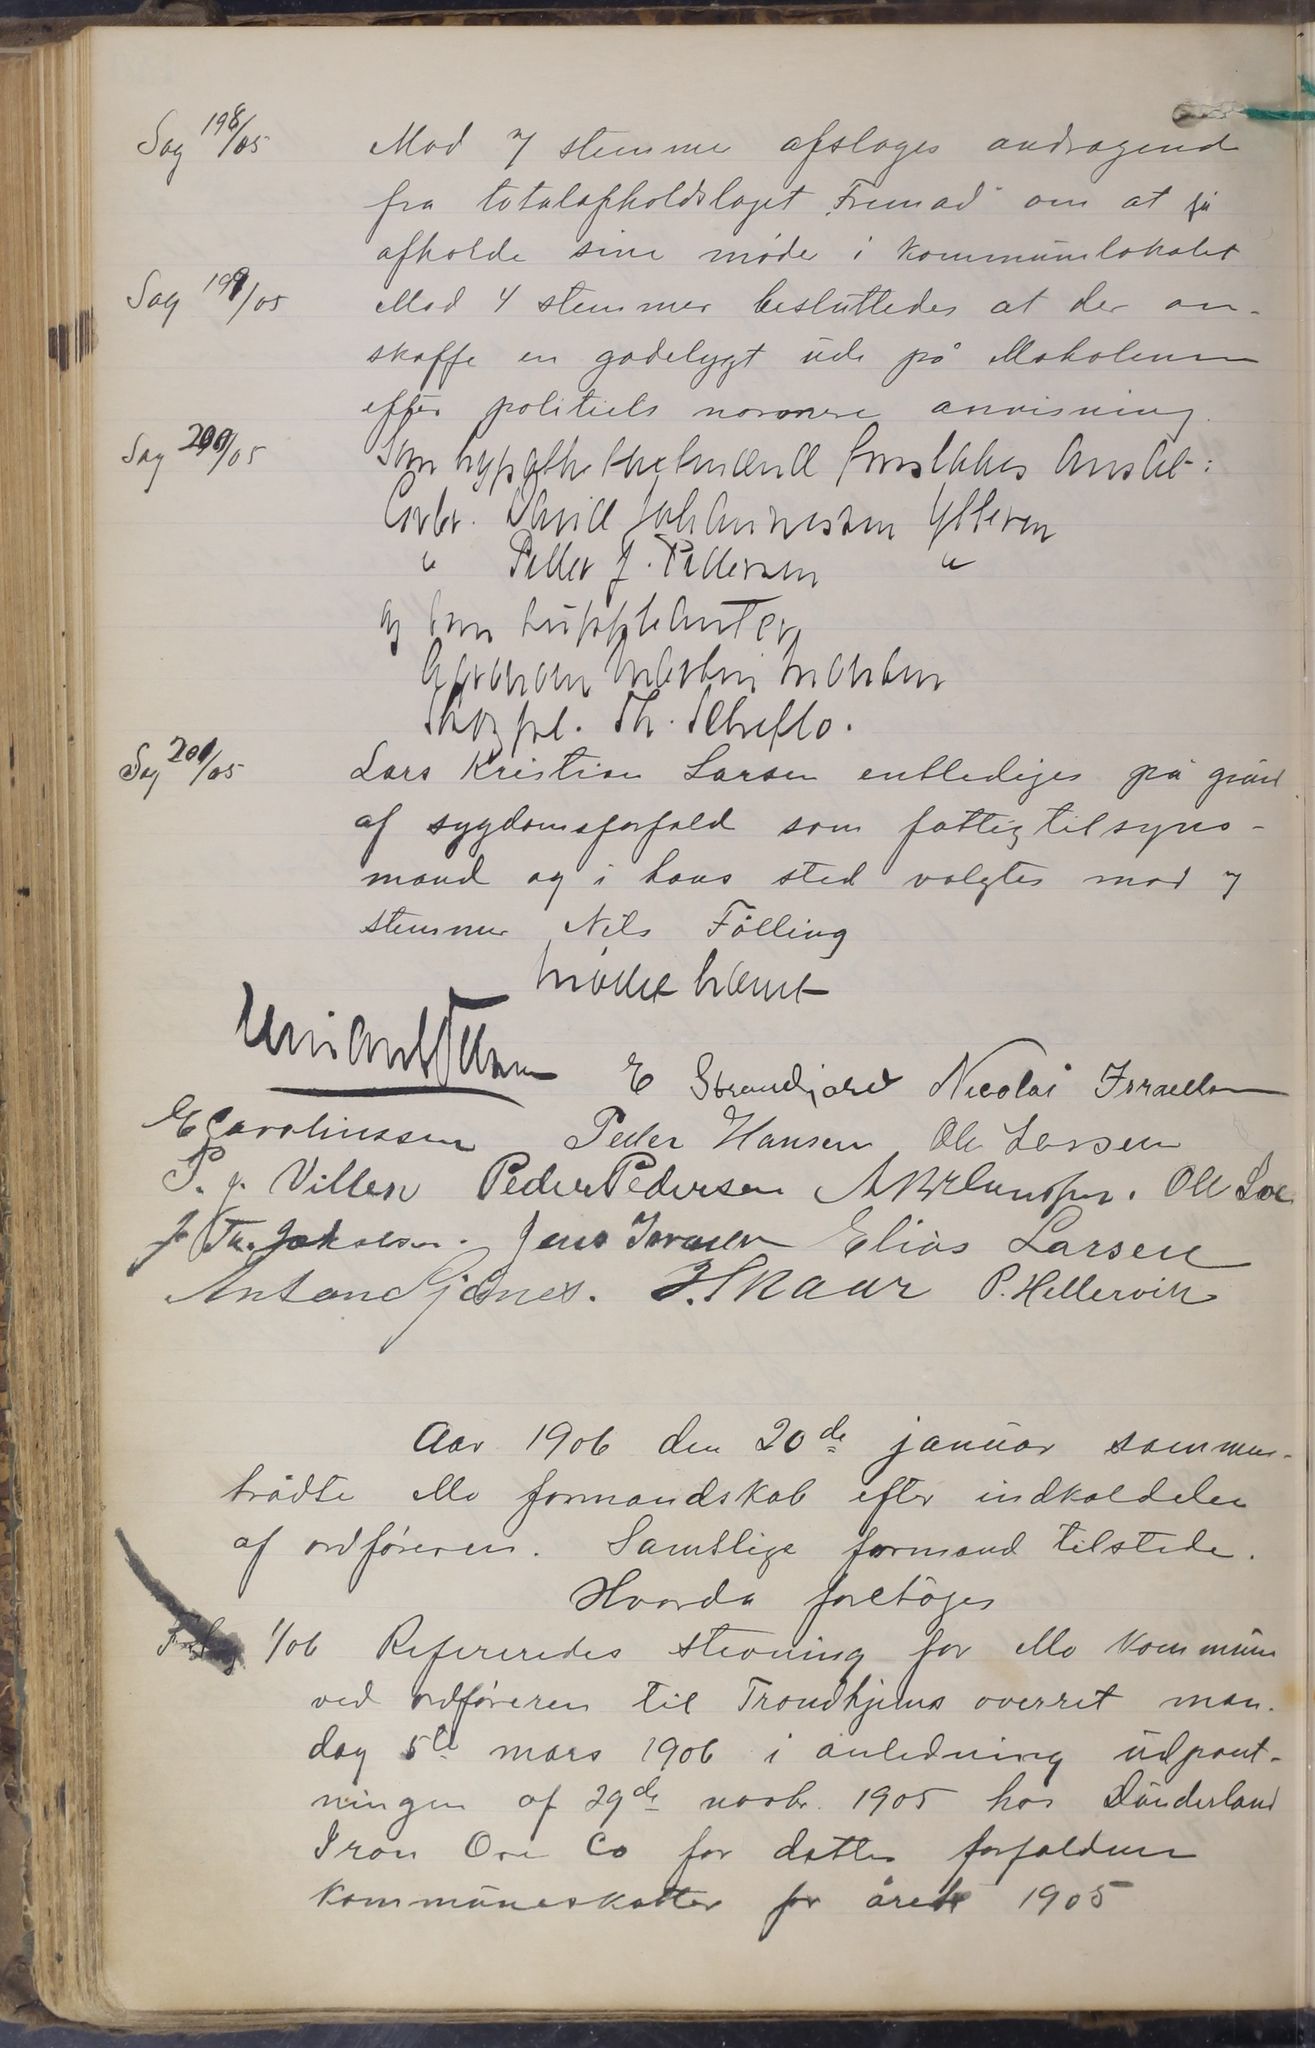 Sag 198/05 Mod 7 stemme afsloges andragende
fra totalafholdslaget "Fremad" om at få
afholde sine møde i kommunelokalet
Sag 199/05 Mod 4 stemmer besluttedes at der an-
skaffe en gadelygt ude på Moholmen
efter politiets nærmere anvisning.
Sag 200/05 Som hypothekagtmænd foreslåes ansat:
Grbr. David Johannessen Ytteren
" Peder J. Pedersen "
og som suppleanter
Abraham Martin
Th.
Sag 201/05 Lars Kristian Larsen entlediges på grund
af sygdomsforfald som fattigtilsyns-
mand og i hans sted valgtes mod 7
stemmer Nils Fölling
Mødet hævet
E Strandjord Nicolai Israelsen
E Carolinssen Peder Hansen Ole Larsen
P. J. Villesen Peder Pedersen Ole
J Th. Jakobsen. Jens Iversen Elias Larsen
Anton J. Skaar P. Hellervik
Aar 1906 den 20de januar sammen-
trådte Mo formandskab efter indkaldelse
af ordføreren. Samtlige formænd tilstede.
Hvorda foretoges
1/06 Refereredes stevning for Mo kommune
ved ordføreren til Trondhjems overret man-
dag 5te mars 1906 i anledning udpant-
ningen af 29de novbr. 1905 hos Dunderland
Iron Ore Co for dettes forfaldne
kommuneskatter for året 1905